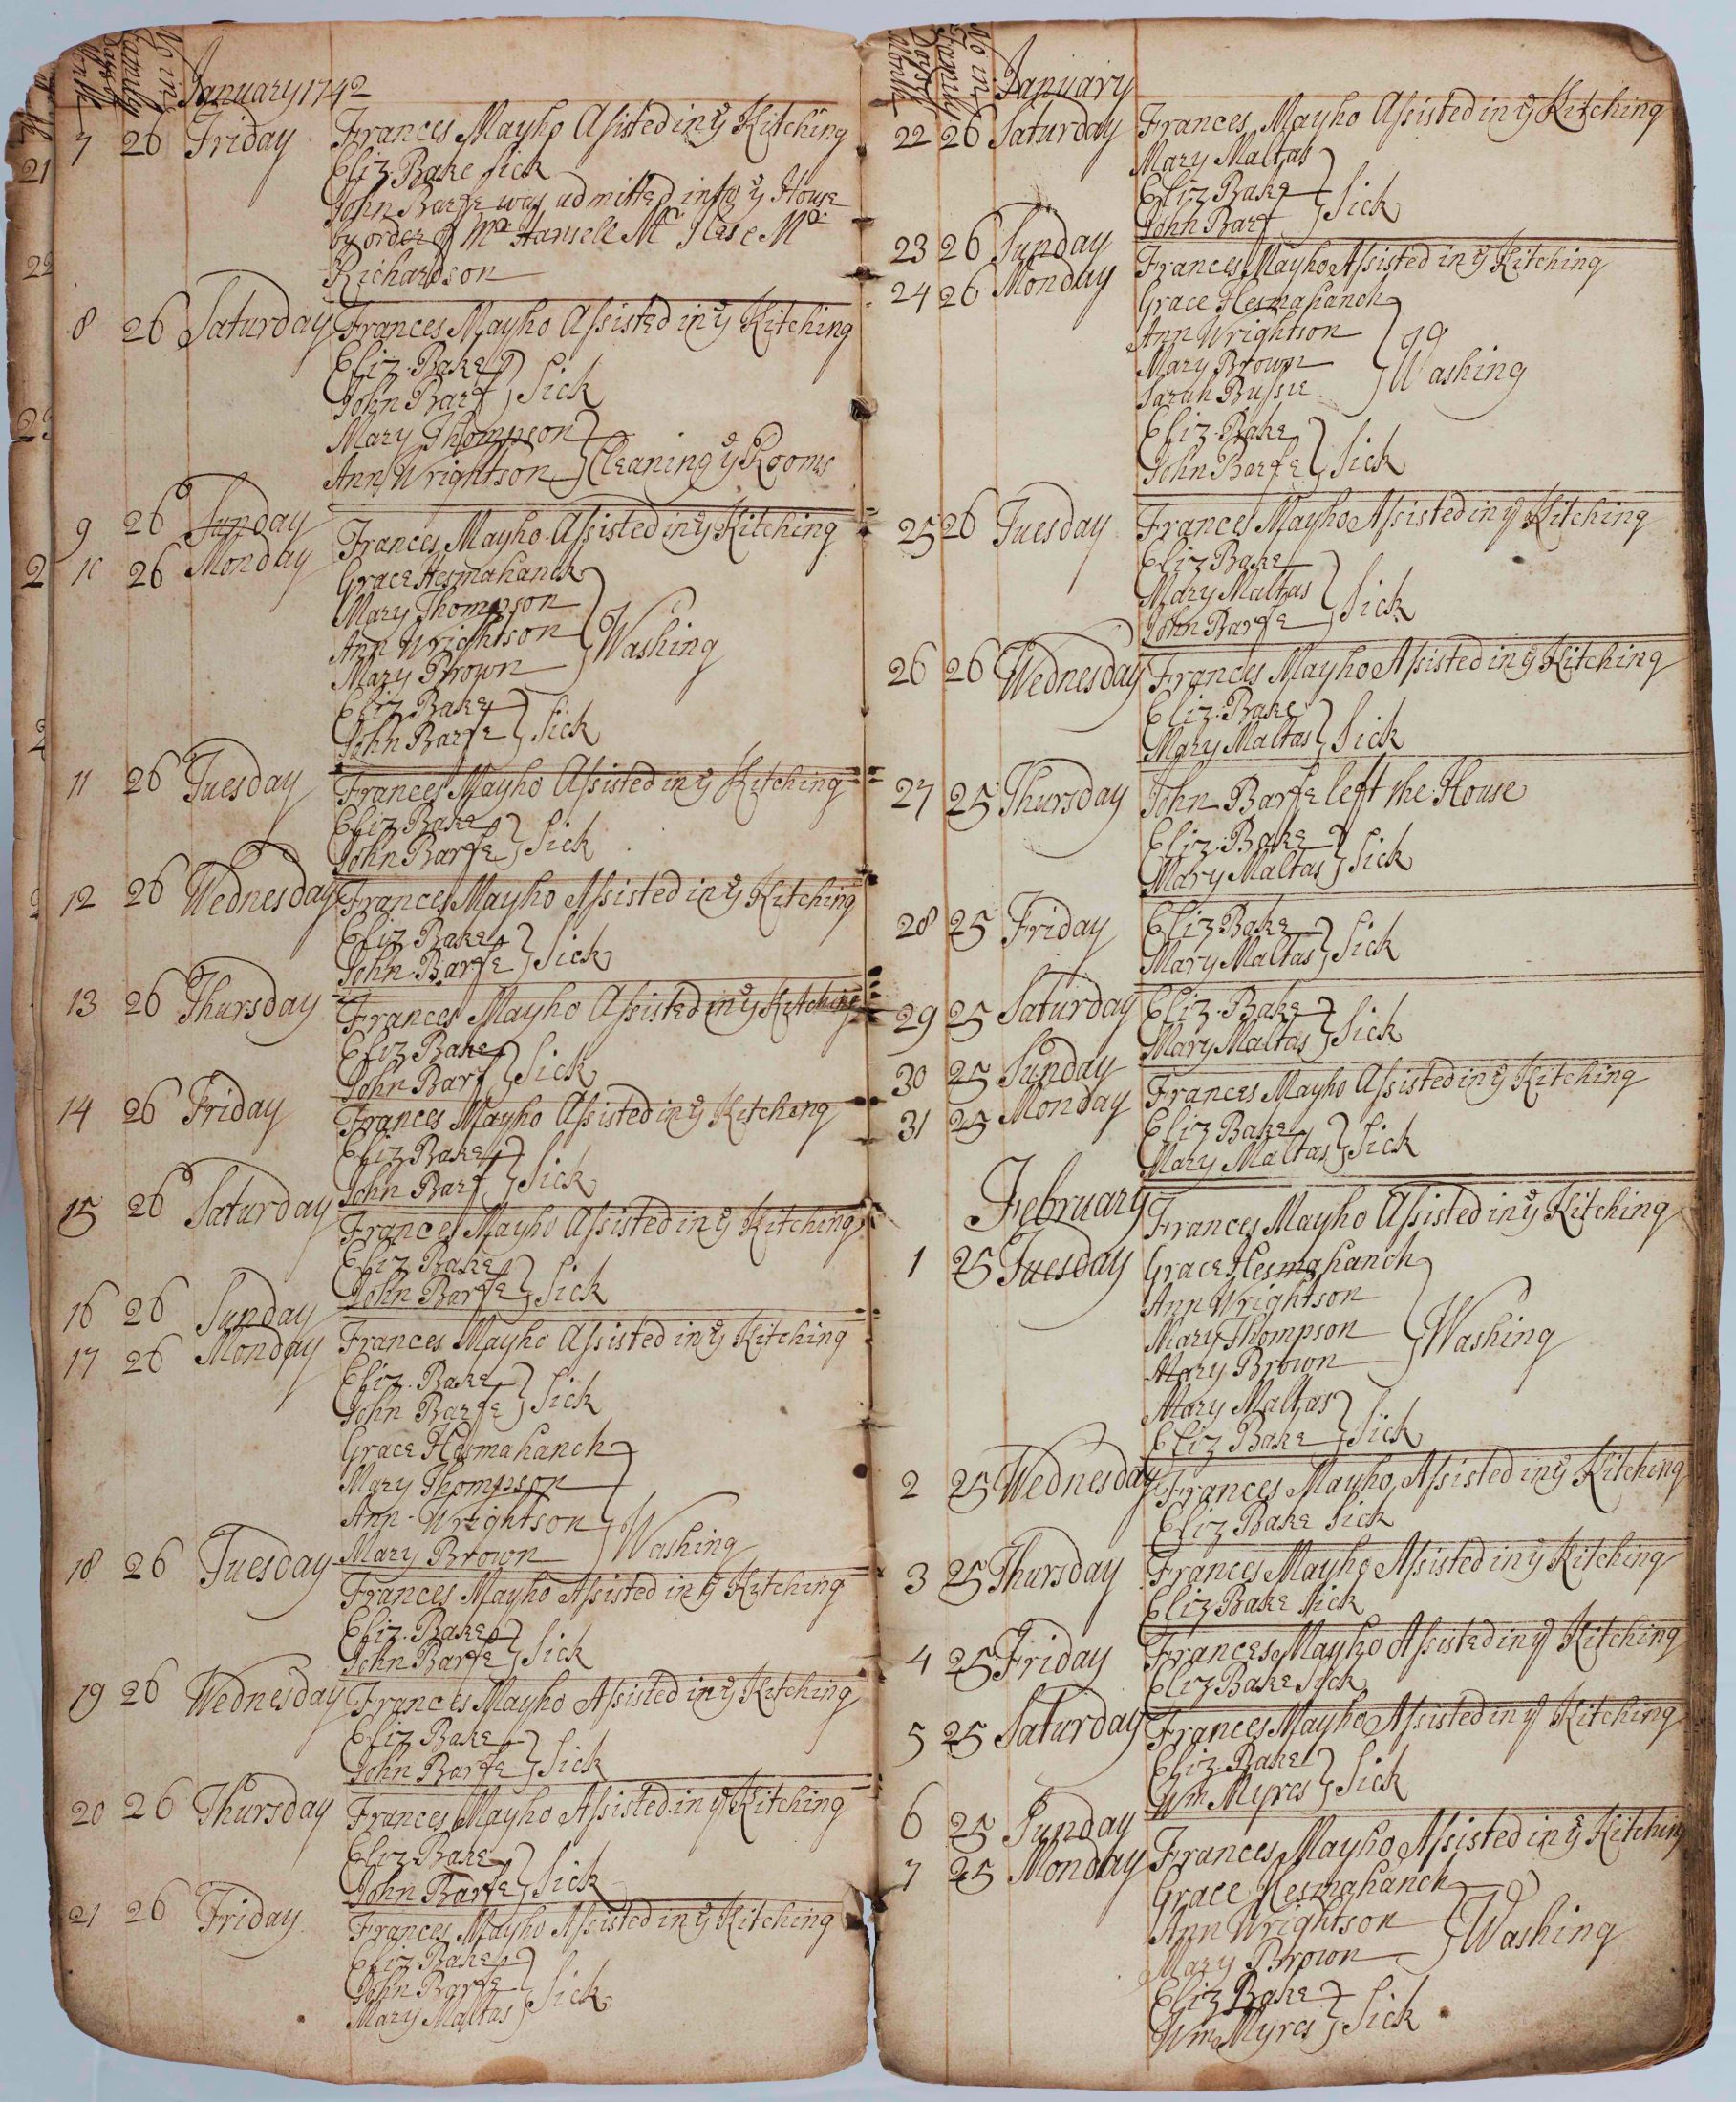 Days of Month
No in Family
January 1742
7 26 Friday Frances Mayho Assisted in yͤ Kitching
Eliz Bake sick
John Barfe was admitted into yͤ House
by order of Mr Hansell Mr Mr
Richardson
8 26 Saturday Frances Mayho Assisted in yͤ Kitching
Eliz. Bake
John Barf } Sick
Mary Thompson
Ann Wrightson } Cleaning yͤ Rooms
9 26 Sunday
10 26 Monday Frances Mayho Assisted in yͤ Kitching
Grace Hesmahanch
Mary Thompson
Ann Wrightson
Mary Brown } Washing
Eliz Bake
John Barfe } Sick
11 26 Tuesday Frances Mayho Assisted in yͤ Kitching
Eliz Bake
John Barfe } Sick
12 26 Wednesday Frances Mayho Assisted in yͤ Kitching
Eliz Bake
John Barfe } Sick
13 26 Thursday Frances Mayho Assisted in yͤ Kitching
Eliz Bake
John Barf } Sick
14 26 Friday Frances Mayho Assisted in yͤ Kitching
Eliz Bake
John Barf } Sick
15 26 Saturday Frances Mayho Assisted in yͤ Kitching
Eliz Bake
John Barfe } Sick
16 26 Sunday
17 26 Monday Frances Mayho Assisted in yͤ Kitching
Eliz. Bake
John Barfe } Sick
Grace Hesmahanch
Mary Thompson
Ann Wrightson
Mary Brown } Washing
18 26 Tuesday Frances Mayho Assisted in yͤ Kitching
Eliz. Bake
John Barfe } Sick
19 26 Wednesday Frances Mayho Assisted in yͤ Kitching
Eliz Bake
John Barfe } Sick
20 26 Thursday Frances Mayho Assisted in yͤ Kitching
Eliz Bake
John Barfe } Sick
21 26 Friday Frances Mayho Assisted in yͤ Kitching
Eliz. Bake
John Barfe
Mary Maltas } Sick
Days of Month
No in Family
January
22 26 Saturday Frances Mayho Assisted in yͤ Kitching
Mary Maltas
Eliz Bake
John Barf } Sick
23 26 Sunday
24 26 Monday Frances Mayho Assisted in yͤ Kitching
Grace Hesmahanch
Ann Wrightson
Mary Brown
Sarah Bussie } Washing
Eliz. Bake
John Barfe } Sick
25 26 Tuesday Frances Mayho Assisted in yͤ Kitching
Eliz Bake
Mary Maltas
John Barfe } Sick
26 26 Wednesday Frances Mayho Assisted in yͤ Kitching
Eliz. Bake
Mary Maltas } Sick
27 25 Thursday John Barfe left the House
Eliz. Bake
Mary Maltas } Sick
28 25 Friday Eliz Bake
Mary Maltas } Sick
29 25 Saturday Eliz. Bake
Mary Maltas } Sick
30 25 Sunday
31 25 Monday Frances Mayho Assisted in yͤ Kitching
Eliz Bake
Mary Maltas } Sick
February
1 25 Tuesday Frances Mayho Assisted in yͤ Kitching
Grace Hesmahanch
Ann Wrightson
Mary Thompson
Mary Brown } Washing
Mary Maltas
Eliz Bake } Sick
2 25 Wednesday Frances Mayho Assisted in yͤ Kitching
Eliz Bake Sick
3 25 Thursday Frances Mayho Assisted in yͤ Kitching
Eliz Bake Sick
4 25 Friday Frances Mayho Assisted in yͤ Kitching
Eliz Bake Sick
5 25 Saturday Frances Mayho Assisted in yͤ Kitching
Eliz. Bake
Wm Myres } Sick
6 25 Sunday
7 25 Monday Frances Mayho Assisted in yͤ Kitching
Grace Hesmahanch
Ann Wrightson
Mary Brown } Washing
Eliz Bake
Wm Myres } Sick